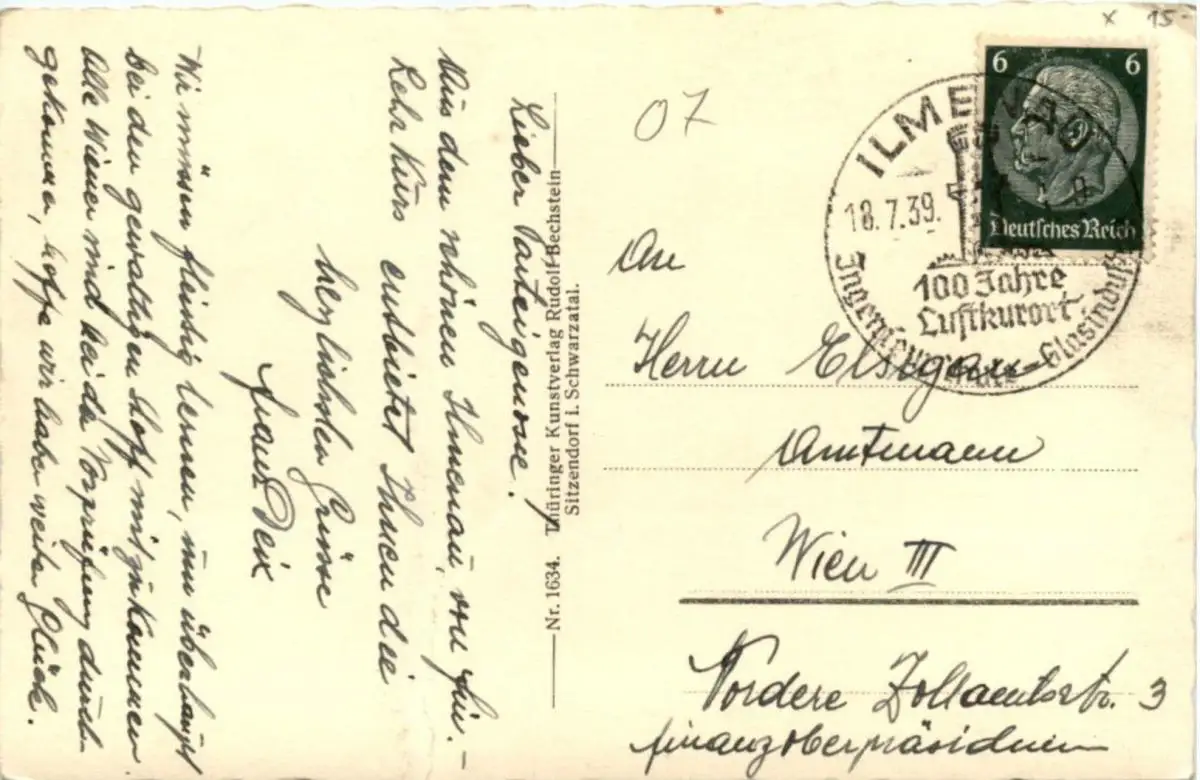 Lieber Parteigenosse!
Aus dem schönen Ilmenau, vom Fin.-
Lehrkurs entbietet Ihnen die
herzlichsten Grüsse
Franz Deix
Wir müssen fleissig lernen, um überhaupt
bei dem gewaltigen Stoff mitzukommen
Alle Wiener sind bei der Vorprüfung durch-
gekommen, hoffe wir haben weiter Glück.
Nr. 1634. Thüringer Kunstverlag Rudolf Bechstein
Sitzendorf i. Schwarzatal.
07
x 15-
6 6
Deutsches Reich
ILMENAU
18.7.39.
100 Jahre
Luftkurort
An
Herrn Elsigan
Amtmann
Wien III
Vordere Zollamtsstr. 3
Finanzoberpräsidium